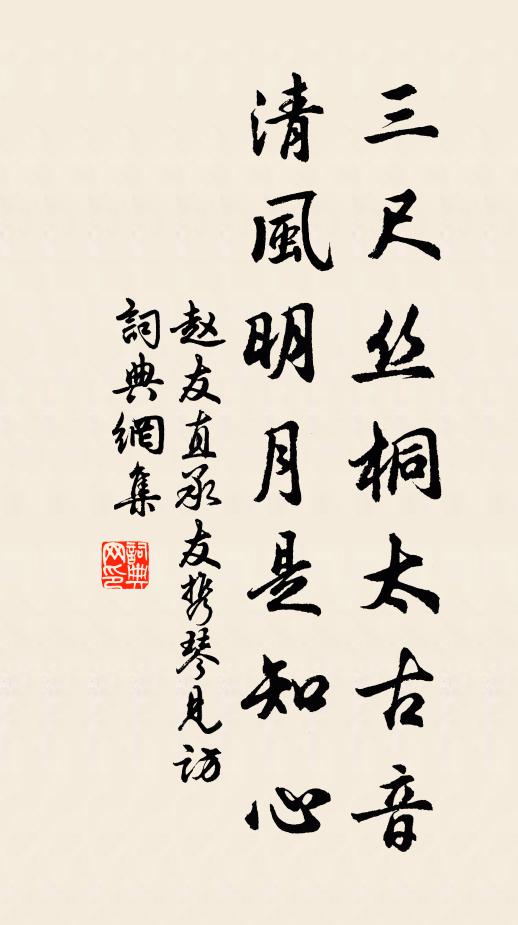 三尺丝桐太古音
清風明月是知心
赵友直承友携琴見訪
詞典網集
詞典网印